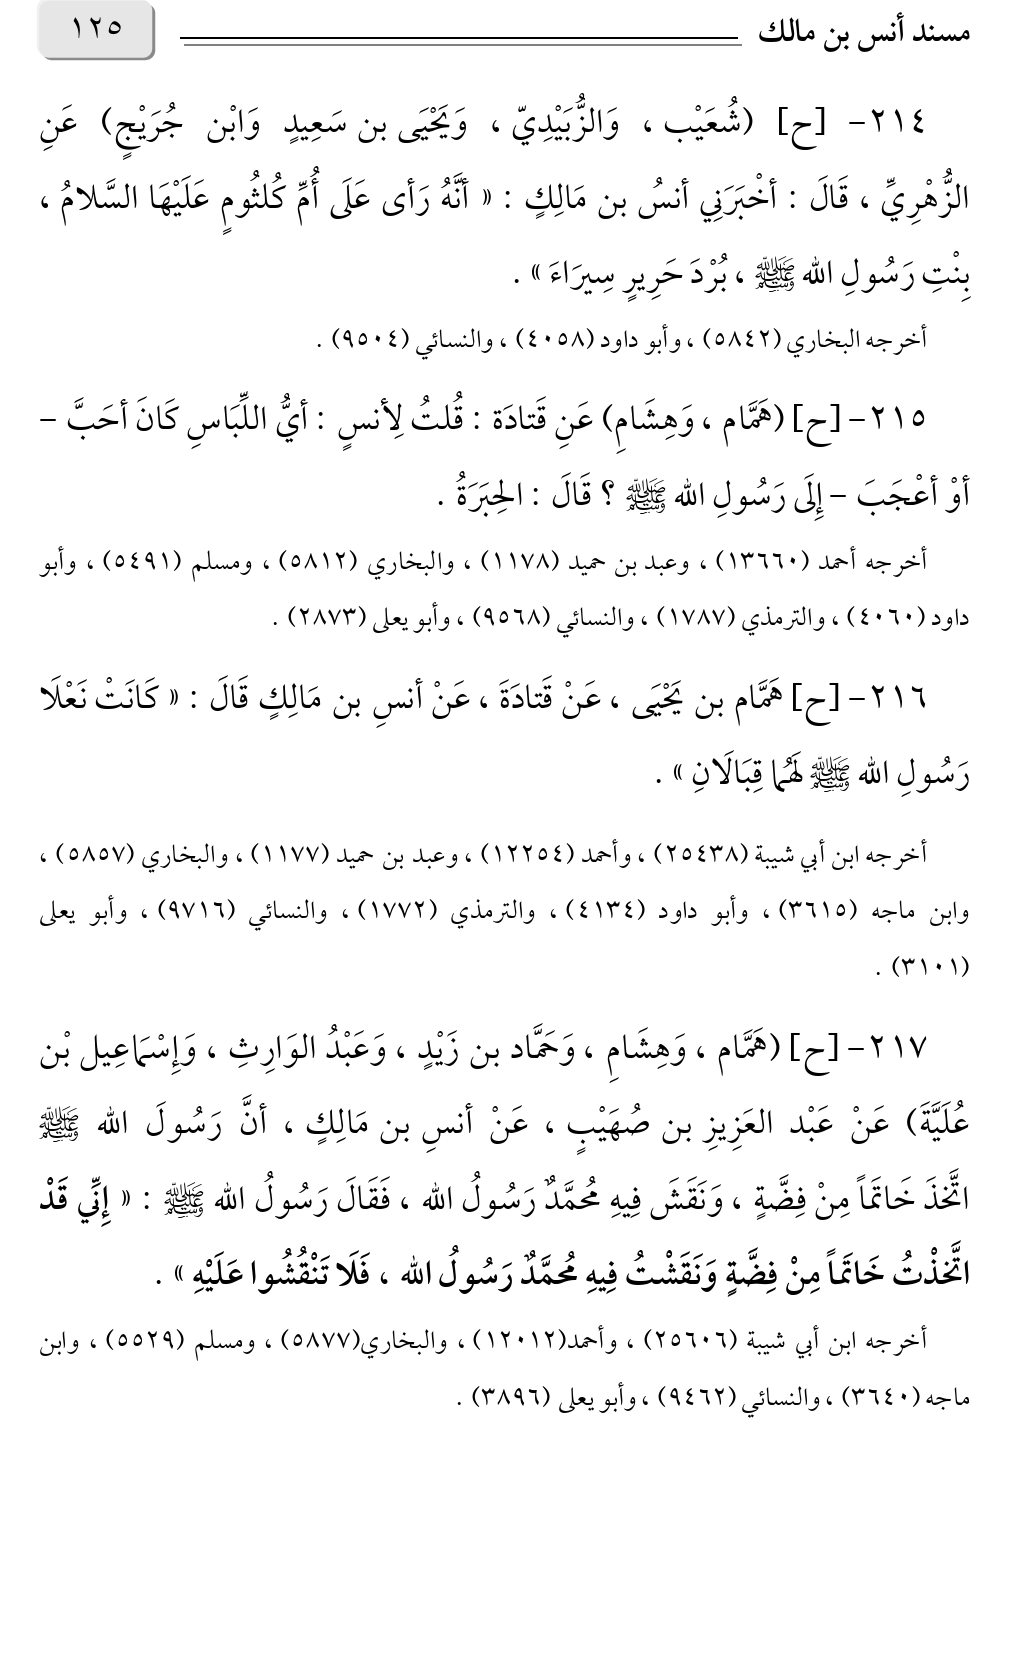 مسند أنس بن مالك ١٢٥
٢١٤- [ح] (شُعَيْب ، وَالزُّبَيْدِيّ ، وَيَحْيَى بن سَعِيدٍ وَابْن جُرَيْجٍ) عَنِ
الزُّهْرِيِّ ، قَالَ : أخْبَرَنِي أنسُ بن مَالِكٍ : « أنَّهُ رَأى عَلَى أُمِّ كُلثُومٍ عَلَيْهَا السَّلامُ ،
بِنْتِ رَسُولِ الله ﷺ ، بُرْدَ حَرِيرٍ سِيرَاءَ » .
أخرجه البخاري (٥٨٤٢) ، وأبو داود (٤٠٥٨) ، والنسائي (٩٥٠٤) .
٢١٥- [ح] (هَمَّام ، وَهِشَامِ) عَنِ قَتادَة : قُلتُ لِأنسٍ : أيُّ اللِّبَاسِ كَانَ أحَبَّ –
أوْ أعْجَبَ – إِلَى رَسُولِ الله ﷺ ؟ قَالَ : الحِبَرَةُ .
أخرجه أحمد (١٣٦٦٠) ، وعبد بن حميد (١١٧٨) ، والبخاري (٥٨١٢) ، ومسلم (٥٤٩١) ، وأبو
داود (٤٠٦٠) ، والترمذي (١٧٨٧) ، والنسائي (٩٥٦٨) ، وأبو يعلى (٢٨٧٣) .
٢١٦- [ح] هَمَّام بن يَحْيَى ، عَنْ قَتادَةَ ، عَنْ أنسِ بن مَالِكٍ قَالَ : « كَانَتْ نَعْلَا
رَسُولِ الله ﷺ لَهُما قِبَالَانِ » .
أخرجه ابن أبي شيبة (٢٥٤٣٨) ، وأحمد (١٢٢٥٤) ، وعبد بن حميد (١١٧٧) ، والبخاري (٥٨٥٧) ،
وابن ماجه (٣٦١٥) ، وأبو داود (٤١٣٤) ، والترمذي (١٧٧٢) ، والنسائي (٩٧١٦) ، وأبو يعلى
(٣١٠١) .
٢١٧- [ح] (هَمَّام ، وَهِشَامِ ، وَحَمَّاد بن زَيْدٍ ، وَعَبْدُ الوَارِثِ ، وَإِسْمَاعِيل بْن
عُلَيَّةَ) عَنْ عَبْد العَزِيزِ بن صُهَيْبٍ ، عَنْ أنسِ بن مَالِكٍ ، أنَّ رَسُولَ الله ﷺ
اتَّخذَ خَاتَماً مِنْ فِضَّةٍ ، وَنَقَشَ فِيهِ مُحمَّدٌ رَسُولُ الله ، فَقَالَ رَسُولُ الله ﷺ : « إِنِّي قَدْ
اتَّخذْتُ خَاتَماً مِنْ فِضَّةٍ وَنَقَشْتُ فِيهِ مُحمَّدٌ رَسُولُ الله ، فَلَا تَنْقُشُوا عَلَيْهِ » .
أخرجه ابن أبي شيبة (٢٥٦٠٦) ، وأحمد(١٢٠١٢) ، والبخاري(٥٨٧٧) ، ومسلم (٥٥٢٩) ، وابن
ماجه (٣٦٤٠) ، والنسائي (٩٤٦٢) ، وأبو يعلى (٣٨٩٦) .